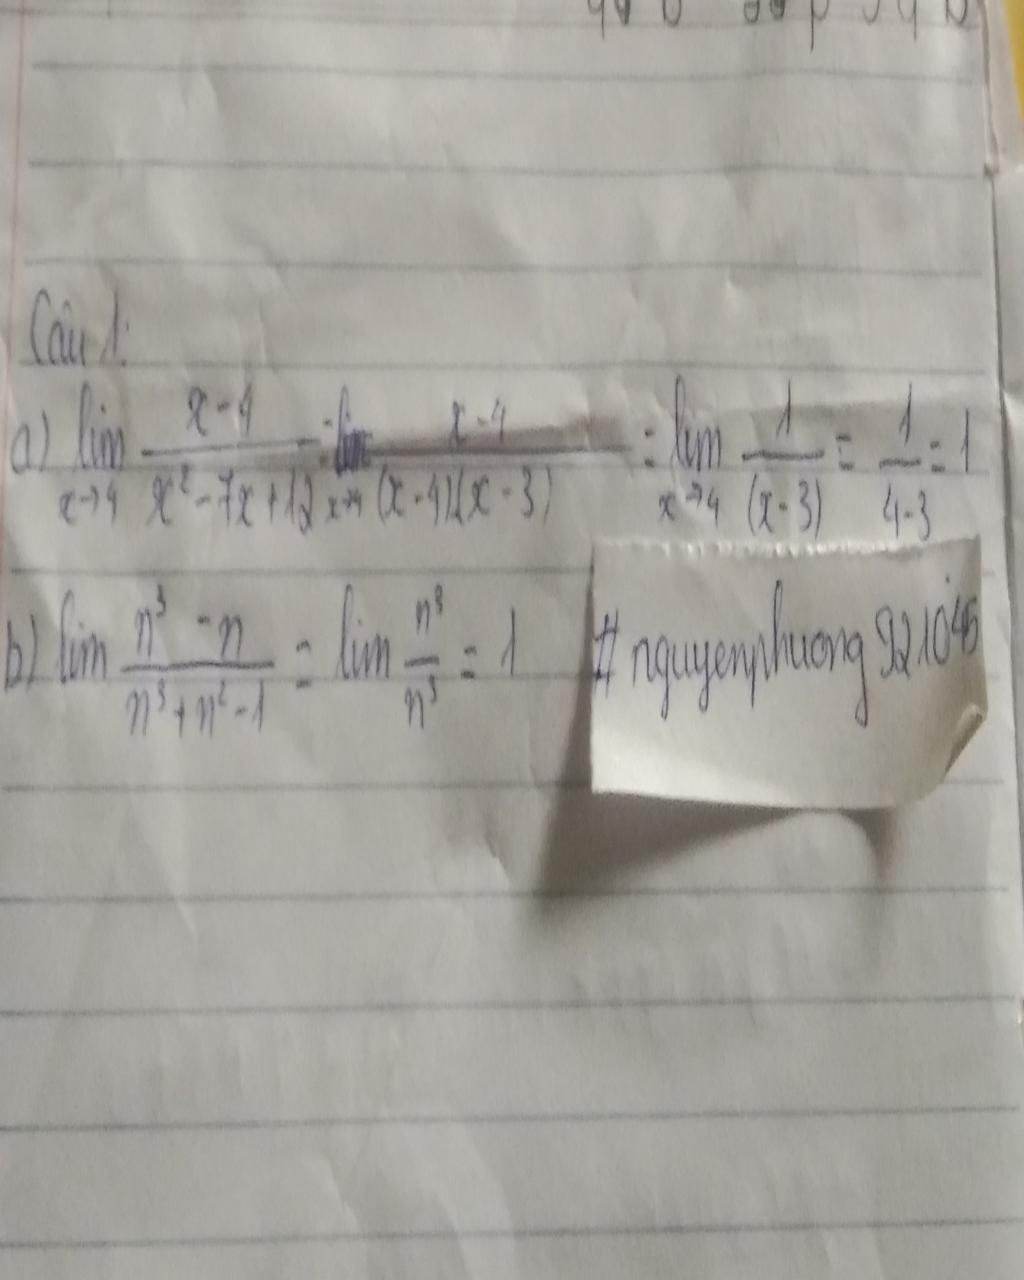 Câu 1:
a) lim x→4 x-4 / x²-7x+12 = lim x→4 x-4 / (x-4)(x-3) = lim x→4 1 / (x-3) = 1 / 4-3 = 1
b) lim n³-n / n³+n²-1 = lim n³ / n³ = 1
#nguyenphuong921045